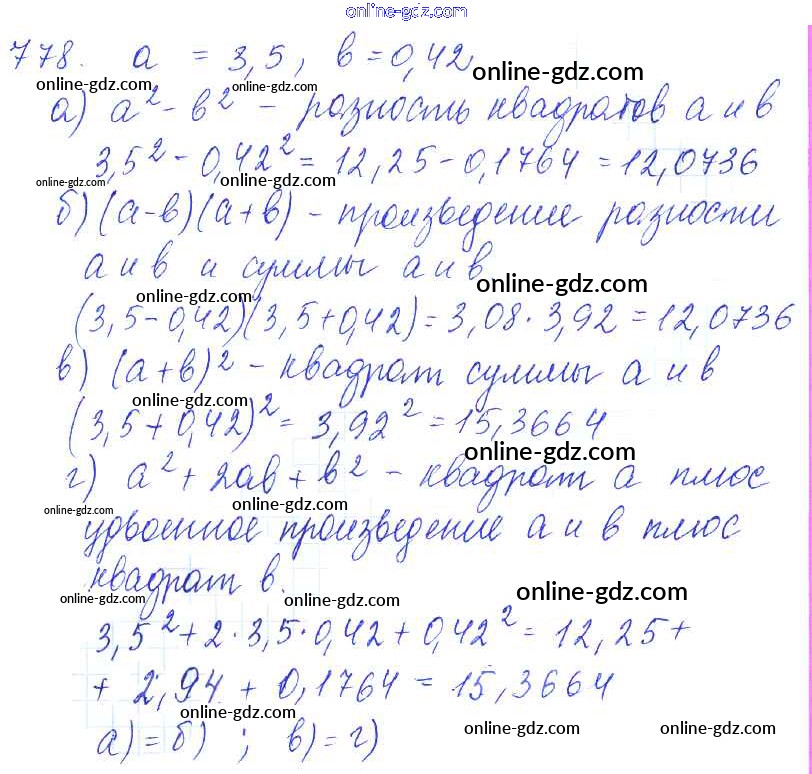 online-gdz.com
778. a = 3,5, в = 0,42
online-gdz.com
online-gdz.com online-gdz.com
а) a² - в² - разность квадратов а и в
3,5² - 0,42² = 12,25 - 0,1764 = 12,0736
online-gdz.com online-gdz.com
б) (а-в)(а+в) - произведение разности
а и в и суммы а и в
online-gdz.com
online-gdz.com
(3,5-0,42)(3,5+0,42) = 3,08·3,92 = 12,0736
в) (а+в)² - квадрат суммы а и в
online-gdz.com
(3,5+0,42)² = 3,92² = 15,3664
online-gdz.com
г) а² + 2ав + в² - квадрат а плюс
online-gdz.com online-gdz.com
удвоенное произведение а и в плюс
квадрат в.
online-gdz.com online-gdz.com online-gdz.com
3,5² + 2·3,5·0,42 + 0,42² = 12,25 +
+ 2,94 + 0,1764 = 15,3664
online-gdz.com
online-gdz.com online-gdz.com
а) = б) ; в) = г)